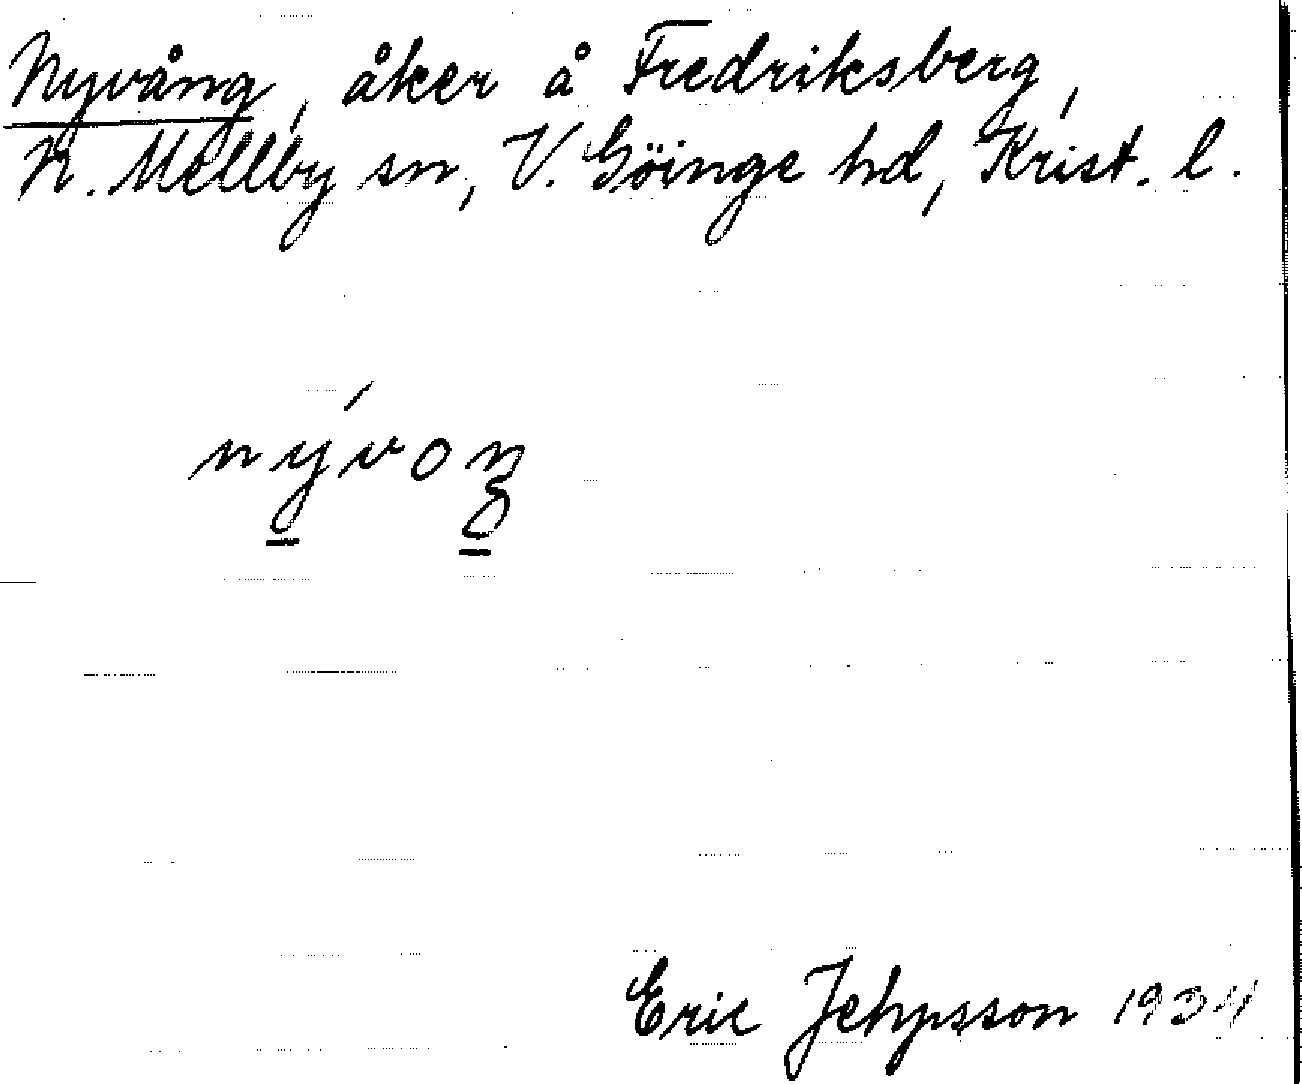 Nyvång, åker å Fredriksberg,
N. Mellby sn, V. Göinge hd, Krist. l.
nývoŋ
Eric Jehpsson 1934